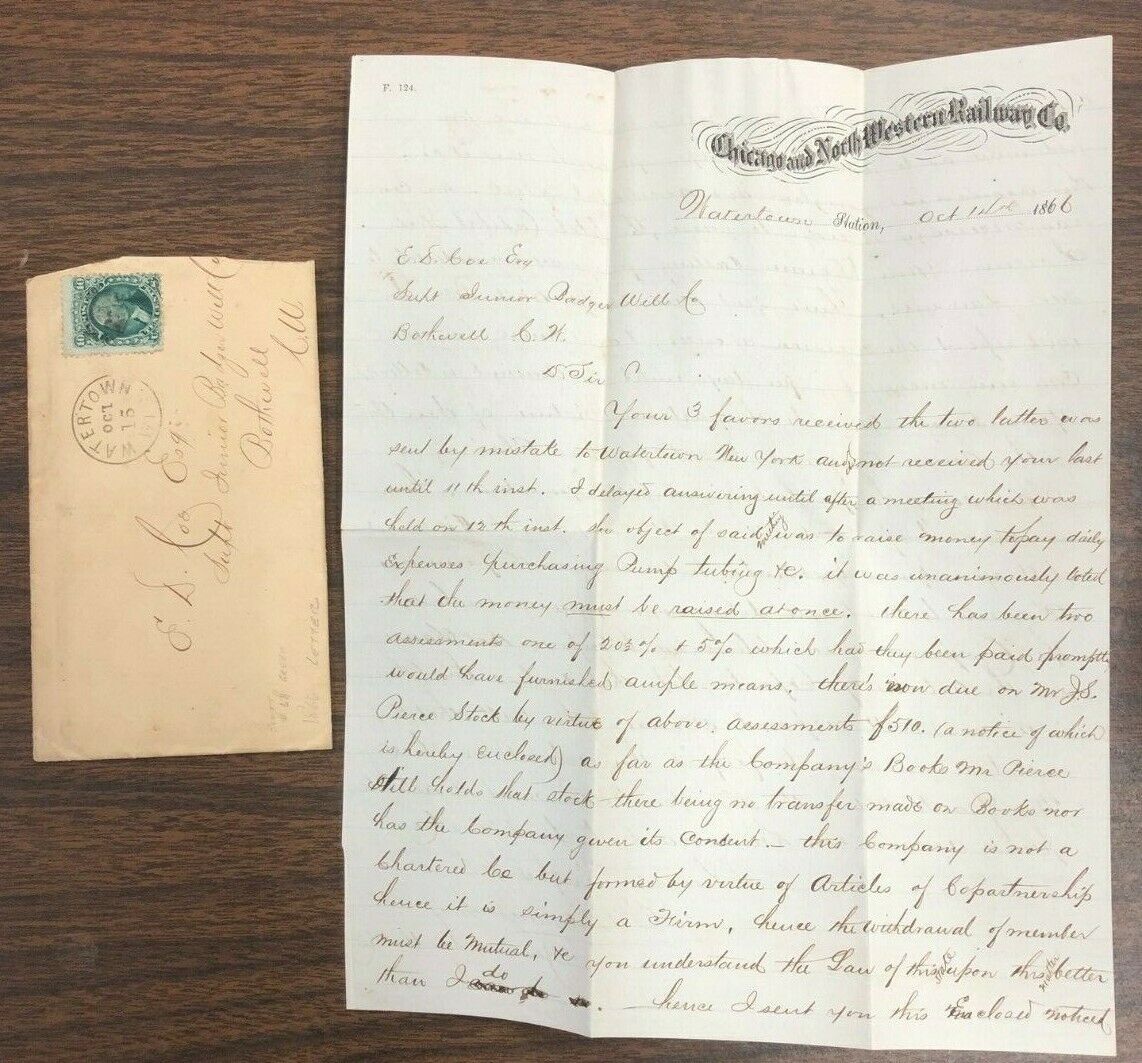 F. 124.
Chicago and North Western Railway Co.
Watertown Station, Oct 1866
E. D. Coe Esq
Supt Junior Badger Well Co
Bothwell C. W.
D. Sir
Your 3 favors received the two latter was
sent by mistake to Watertown New York and not received your last
until 11th inst. I delayed answering until after a meeting which was
held on 12th inst. The object of said meeting was to raise money to pay daily
Expenses purchasing Pump tubing &c. it was unanimously voted
that the money must be raised at once. there has been two
assessments one of 20 % + 5% which had they been paid promptly
would have furnished ample means. there's now due on Mr J. S.
Pierce Stock by virtue of above assessments $510. (a notice of which
is hereby enclosed) as far as the Company's Books Mr Pierce
still holds that stock there being no transfer made on Books nor
has the Company given its Concent. — this Company is not a
Chartered Co but formed by virtue of Articles of Copartnership
hence it is simply a Firm, hence the withdrawal of member
must be Mutual, &c you understand the Law of this upon this better
than I do. — hence I sent you this Enclosed noticed
10
WATERTOWN
OCT
15
WIS.
E. D. Coe Esq.
Supt Junior Badger Well Co
Bothwell
C W
1866 Letter